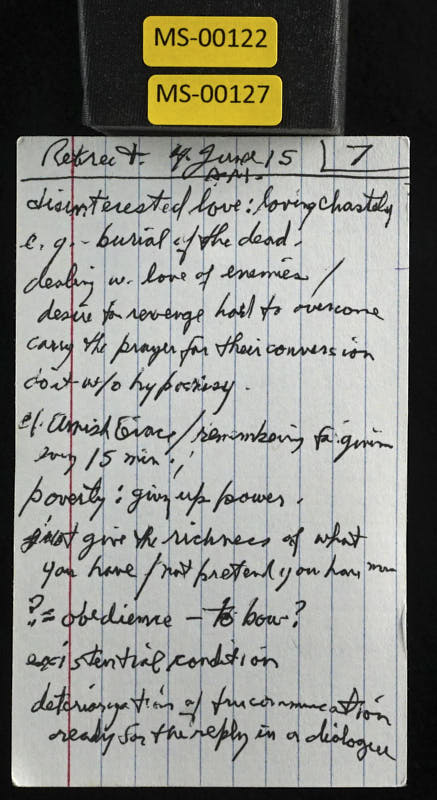 MS-00122
MS-00127
Retreat. 4. June 15 7
A.M.
disinterested love: loving chastely
e.g. - burial of the dead.
dealing w. love of enemies /
desire for revenge hard to overcome
carry the prayer for their conversion
do it w/o hypocrisy.
cf. Amish Grace / remembering forgiven
every 15 min.
poverty: give up power.
not give the richness of what
you have / not pretend you have
? = obedience - to bow?
existential condition
deteriorization of
ready for the reply in a dialogue